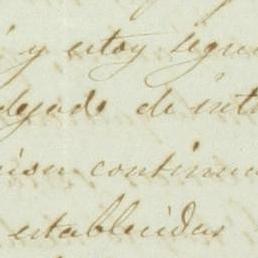 y estoy segu
dejado de int
cion continua
establecidas